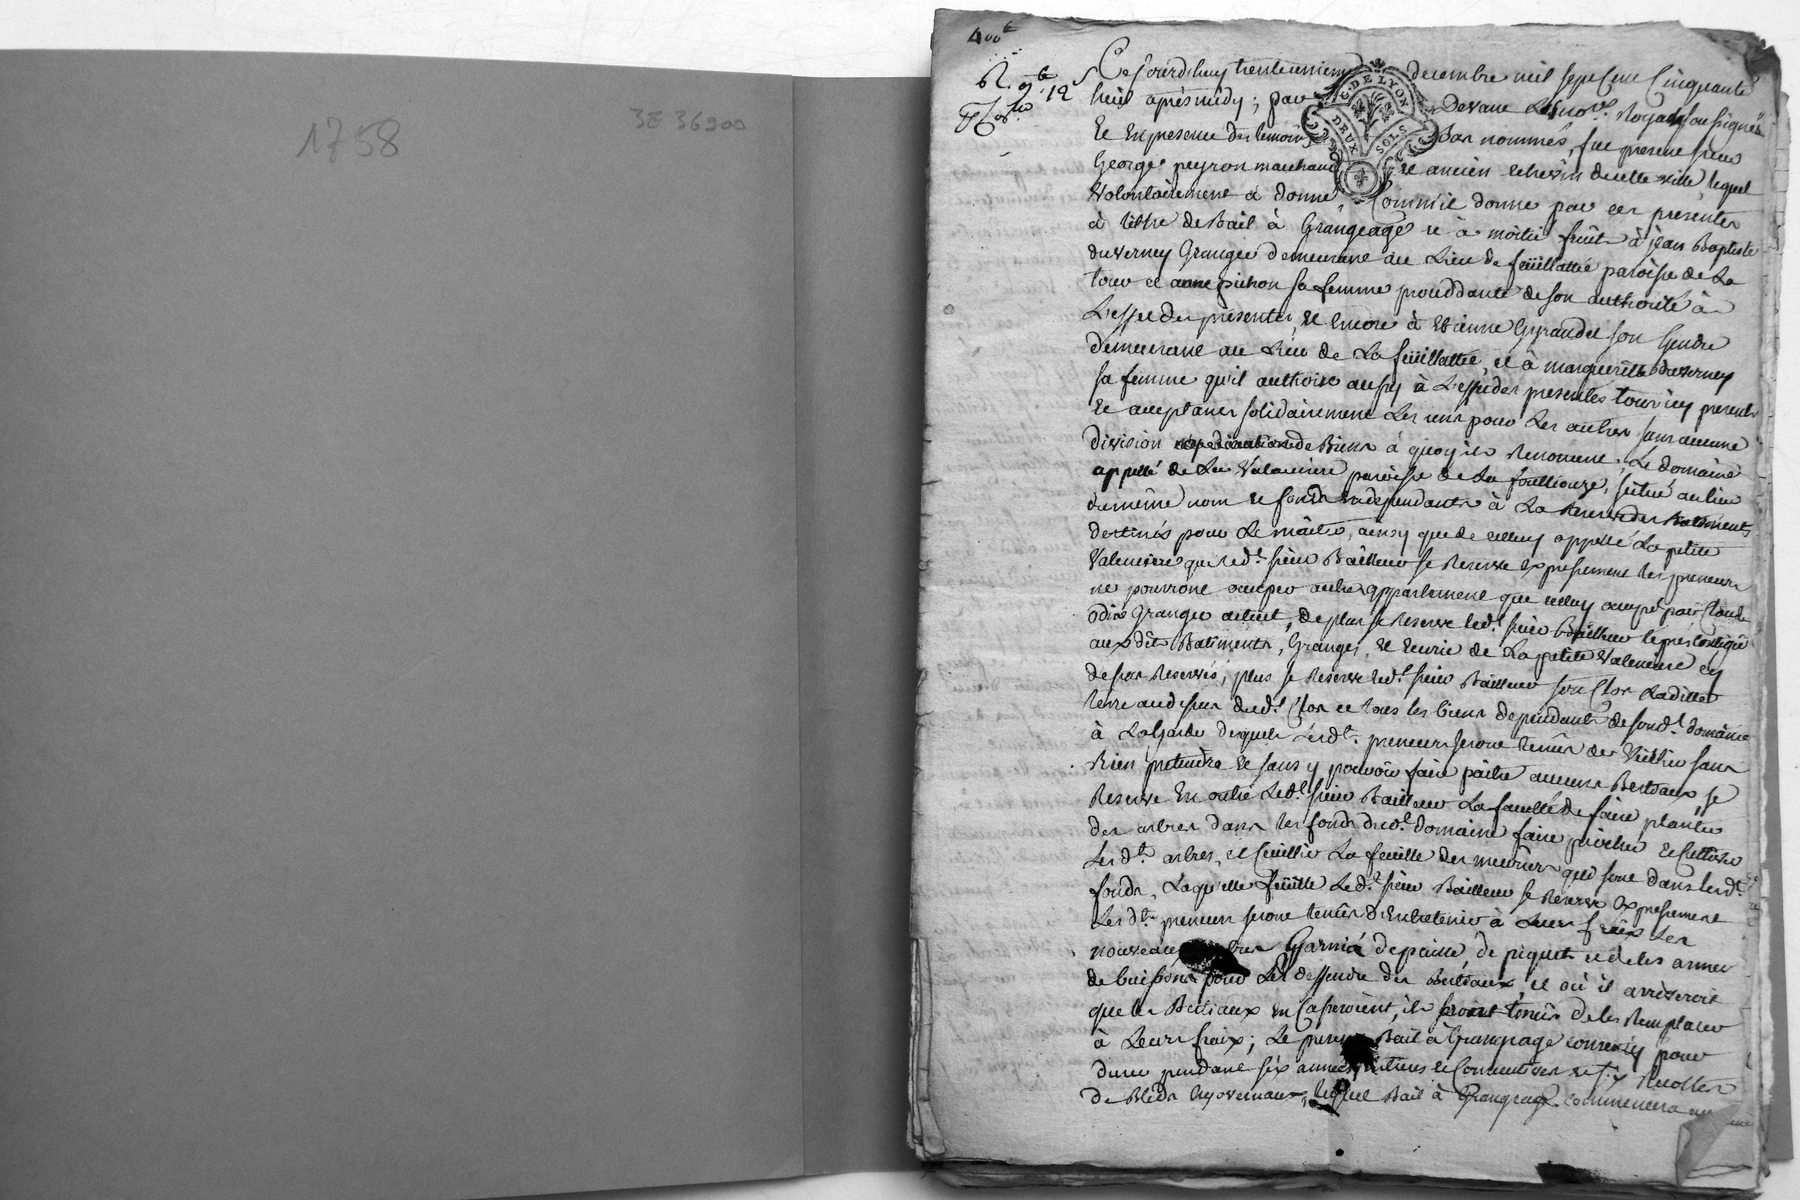 1758
3E 36900
400
G. DE LYON
DEUX SOLS
Cejourdhuy trente unieme decembre mil sept cent Cinquante
huit après midy; par devant Les no.res Royaux soussignés
Et En presence des temoins Bas nommés, fut present sieur
George peyron marchand et ancien echevin de cette ville, lequel
Volontairement a donné, Comm'il donne par ces presentes
à titre de Bail à Grangeage et à moitié fruits à jean Baptiste
duverney Granger demeurant au Lieu de feüillattée paroisse de La
tour et anne pichon sa femme procédante de son authorité à
L'effet des présentes, et Encore à Etienne Gyraudet son Gendre
demeurant au Lieu de La feüillattée, et à marguerite Duverney
sa femme qu'il authorise aussy à L'effet des presentes tous icy presents
Et acceptants solidairement Les uns pour Les autres sans aucune
division de Biens à quoy ils Renoncent. Le domaine
appellé de La Valenciere paroisse de La foüillouze, scitué au lieu
du même nom et fonds en dependants à La Reserve des Batiments
destinés pour Le maitre, ainsy que de celluy appellé La petite
Valenciere que led.t sieur Bailleur se Reserve expressement les preneurs
ne pouvront occuper autre appartement que celluy occupé par Claude
odin Granger actuel, de plus se Reserve led.t sieur Bailleur le pré contigüe
aux dits Batiments, Granges, et Ecurie de La petite Valenciere cy
dessus Reservés; plus se Reserve led.t sieur Bailleur son Clos
terre au dessus dud.t Clos et tous les biens dependants de sond.t domaine
à La Garde desquels Lesd.ts preneurs seront tenus de Veiller sans
Rien pretendre et sans y pouvoir faire paitre aucuns Bestiaux, se
Reserve En outre Led.t sieur Bailleur La faculté de faire planter
des arbres dans les fonds dud.t domaine faire piocher et Cultiver
Lesd.ts arbres, et Cueillir La feuille des meuriers qui sont dans lesd.ts
fonds, Laquelle feüille Led.t sieur Bailleur se Reserve Expressement
Lesd.ts preneurs seront tenus d'Entretenir à Leurs fraix Les
nouveaux Garnis de paille, de piquets et de les armer
de buissons pour Les deffendre des Bestiaux, et où il arriveroit
que les Bestiaux en Casseroient, ils seront tenus de les Remplacer
à Leurs fraix; Le present Bail à Grangeage convenu pour
durer pendant six années entieres et Consecutives et six Recoltes
de Bleds hyvernaux, lequel Bail à Grangeage commencera